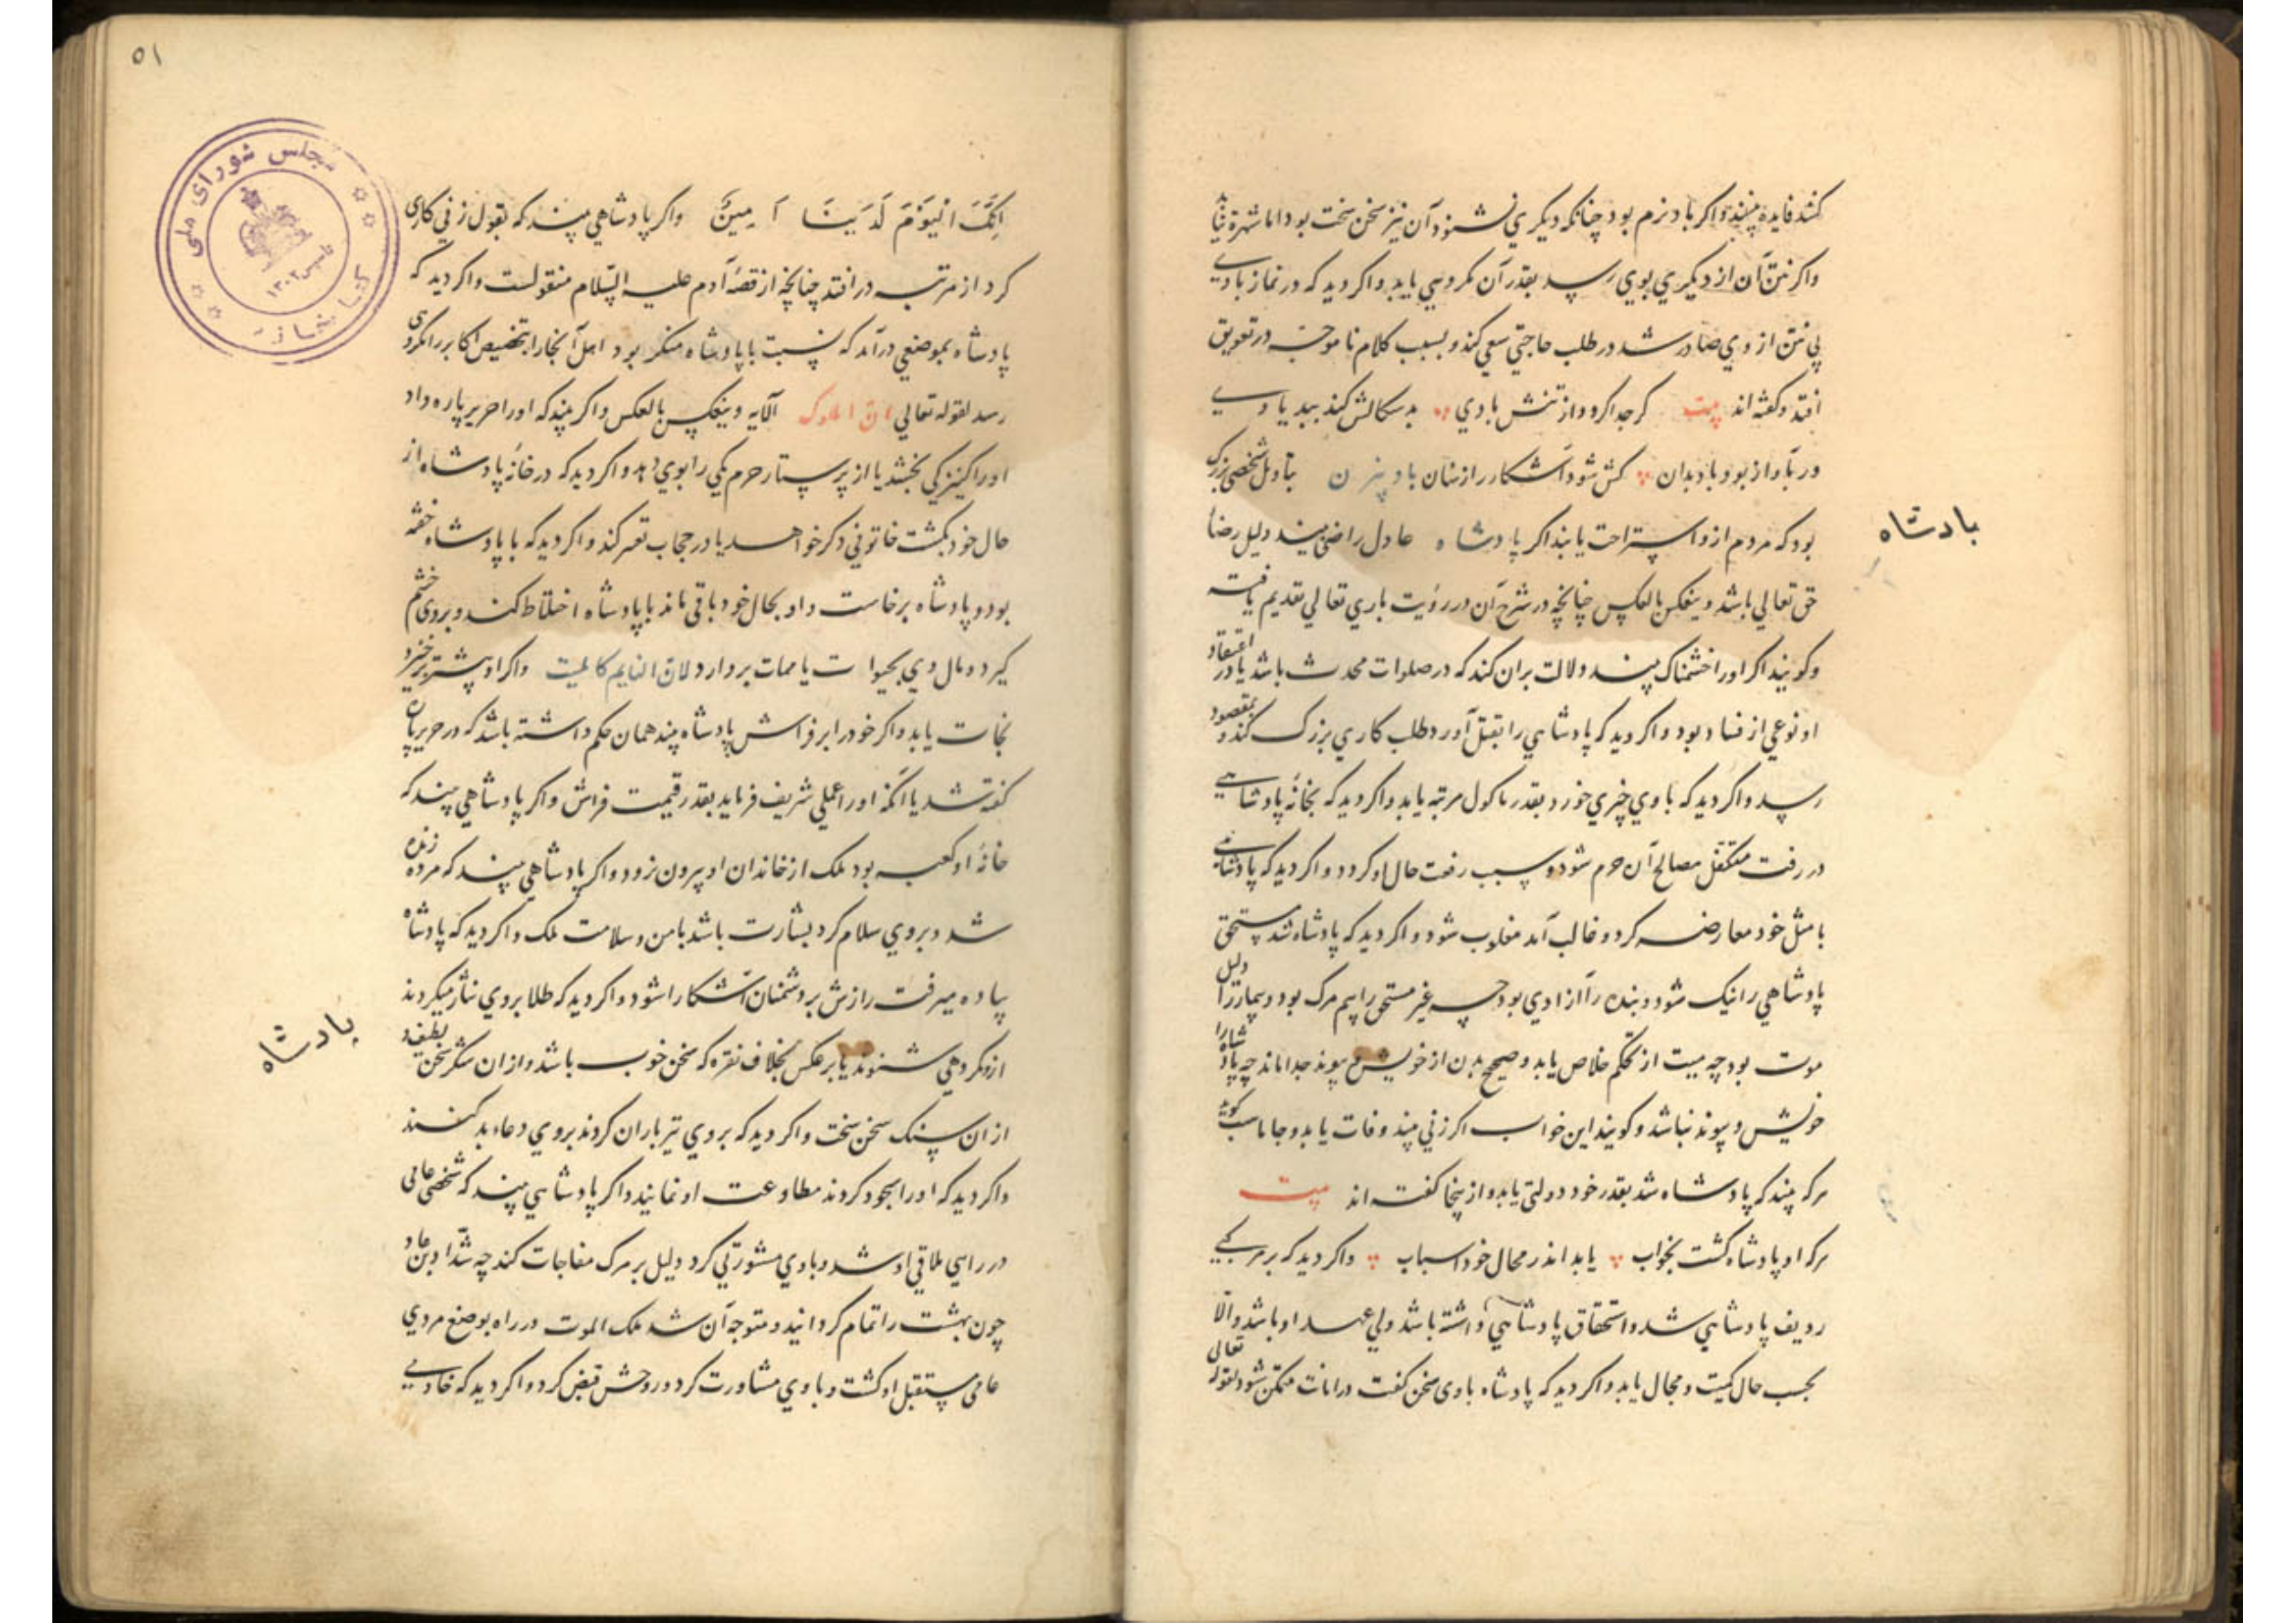 کنند فایده بینند و اکر باد نرم بود چنانکه دیکری نشنود آن نیز سخن سخت بود اما شهرة نیابد
واکر نتن آن از دیکری بوی رسد بقدر آن مکروهی یابد و اکر دید که در نماز بادی
بی نتن از وی صادر شد در طلب حاجتی سعی کند و بسبب کلام نا موجه در تعویق
افتد و کفته اند بیت کرجدا کردد از تنش بادی بد سکالش کند ببد یادی
ور باواز بود باد بدان کش شود آشکار راز نهان بتاویل شخصی بزرک
بود که مردم ازو استراحت یابند اکر پادشاه عادل را راضی بیند دلیل رضاء
پادشاه
حق تعالی باشد و ینعکس بالعکس چنانچه در شرح آن در رؤیت باری تعالی تقدیم یافته
وکویند اکر اورا خشمناک بیند دلالت بران کند که در صلوات محدث باشد یا در اعتقاد
او نوعی از فساد بود و اکر دید که پادشاهی را بقتل آورد طلب کاری بزرک کند و بمقصود
رسد و اکر دید که با وی چیزی خورد بقدر ماکول مرتبه یابد و اکر دید که بخانه پادشاهی
در رفت متکفل مصالح آن حرم شود و سبب رفعت حال او کردد و اکر دید که پادشاهی
با مثل خود معارضه کرد و غالب آمد مغلوب شود و اکر دید که پادشاه شد مستحق
پادشاهی را نیک شود و بنده را آزادی بود چه غیر مستحق را بیم مرک بود و بیمار را دلیل
موت بود چه میت از تحکم خلاص یابد و صحیح بدن از خویش و پیوند جدا ماند چه پادشاه را
خویش و پیوند نباشد و کویند این خواب اکر زنی بیند وفات یابد و جاماسب کوید
هرکه بیند که پادشاه شد بقدر خود دولتی یابد و از ینجا کفته اند بیت
هرکه او پادشاه کشت بخواب یابد اندر محال خود اسباب و اکر دید که بر مرکبی
ردیف پادشاهی شد و استحقاق پادشاهی داشته باشد ولی عهد او باشد والا
بحسب حال کمیت و مجال یابد و اکر دید که پادشاه با وی سخن کفت در امانت متمکن شود لقوله تعالی
۵۱
مجلس شورای ملی
تاسیس ۱۳۰۲
کتابخانه
اِنَّکَ الیَوْمَ لَدَیْنَا اَمِینٌ واکر پادشاهی بیند که بقول زنی کاری
کرد از مرتبه در افتد چنانچه از قصه آدم علیه السلام منقولست و اکر دید که
پادشاه بموضعی درآمد که نسبت با پادشاه منکر بود اهل آنجا را بتخصیص اکابر را مکروهی
رسد لقوله تعالی ان الملوک الآیه و ینعکس بالعکس و اکر بیند که اورا حریر پاره داد
اورا کنیزکی بخشد یا از پرستار حرم یکی را بوی دهد و اکر دید که در خانه پادشاه از
حال خود بکشت خاتونی دکر خواهد یا در حجاب تغیر کند و اکر دید که با پادشاه خفته
بود و پادشاه برخاست و او بحال خود باقی ماند با پادشاه اختلاط کند و بر وی خشم
کیرد و مال وی بحیوات یا ممات بردارد لان النایم کالمیت و اکر او پیشتر برخیزد
نجات یابد و اکر خود را بر فراش پادشاه بیند همان حکم داشته باشد که در حریر پاره
کفته شد یا آنکه اورا عملی شریف فرماید بقدر قیمت فراش و اکر پادشاهی بیند که
خانه او کعبه بود ملک از خاندان او بیرون نرود و اکر پادشاهی بیند که مرده زنده
شد و بر وی سلام کرد بشارت باشد بامن و سلامت ملک و اکر دید که پادشاه
پیاده میرفت رازش بر دشمنان آشکارا شود و اکر دید که طلا بر وی نثار میکردند
پادشاه
ازو مکروهی شنوند یا بر عکس بخلاف نقره که سخن خوب باشد و از ان شکر سخن لطیف و
از ان سنک سخن سخت و اکر دید که بر وی تیر باران کردند بر وی دعاء بد کنند
و اکر دید که اورا سجود کردند مطاوعت او نمایند و اکر پادشاهی بیند که شخصی عامی
در راهی ملاقی او شد و با وی مشورتی کرد دلیل بر مرک مفاجات کند چه شداد بن عاد
چون بهشت را تمام کردانید و متوجه آن شد ملک الموت در راه بوضع مردی
عامی مستقبل او کشت و با وی مشاورت کرد و روحش قبض کرد و اکر دید که خادمی